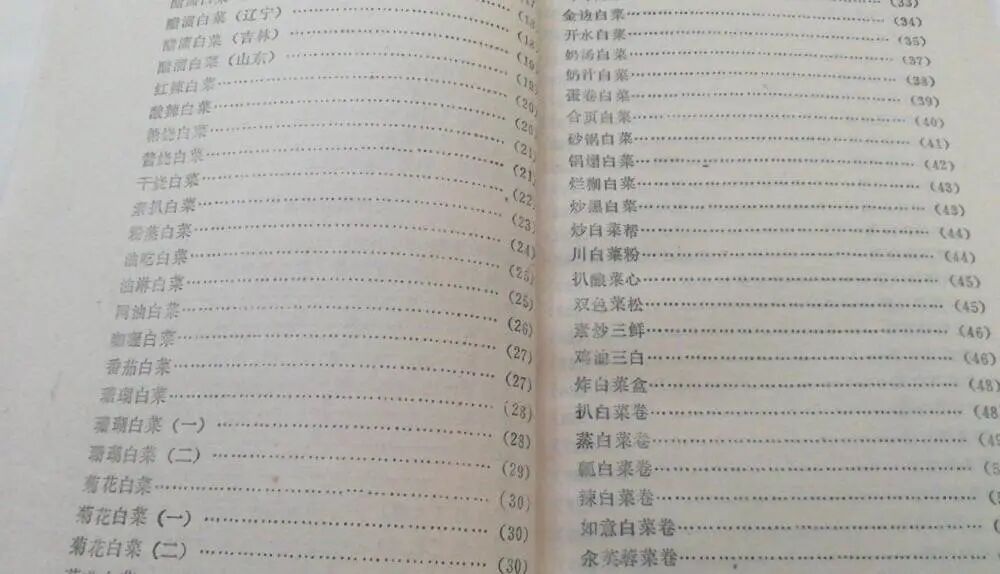 醋溜白菜
醋溜白菜（辽宁）
醋溜白菜（吉林）
醋溜白菜（山东）
红辣白菜…(19)
酸辣白菜…(20)
糖烧白菜…(20)
酱烧白菜…(21)
干烧白菜…(21)
素扒白菜…(22)
粉蒸白菜…(23)
油吃白菜…(24)
油淋白菜…(25)
网油白菜…(25)
咖喱白菜…(26)
番茄白菜…(27)
珊瑚白菜…(27)
珊瑚白菜（一）…(28)
珊瑚白菜（二）…(28)
菊花白菜…(29)
菊花白菜（一）…(30)
菊花白菜（二）…(30)
(30)
(33)
金边白菜…(34)
开水白菜…(35)
奶汤白菜…(37)
奶汁白菜…(38)
蛋卷白菜…(39)
合页白菜…(40)
砂锅白菜…(41)
锅塌白菜…(42)
烂糊白菜…(43)
炒黑白菜…(43)
炒白菜帮…(44)
川白菜粉…(44)
扒酿菜心…(45)
双色菜松…(45)
素炒三鲜…(46)
鸡油三白…(46)
炸白菜盒…(48)
扒白菜卷…(48
蒸白菜卷…(49
瓤白菜卷…(5
辣白菜卷…(5
如意白菜卷…(
汆芙蓉菜卷…(